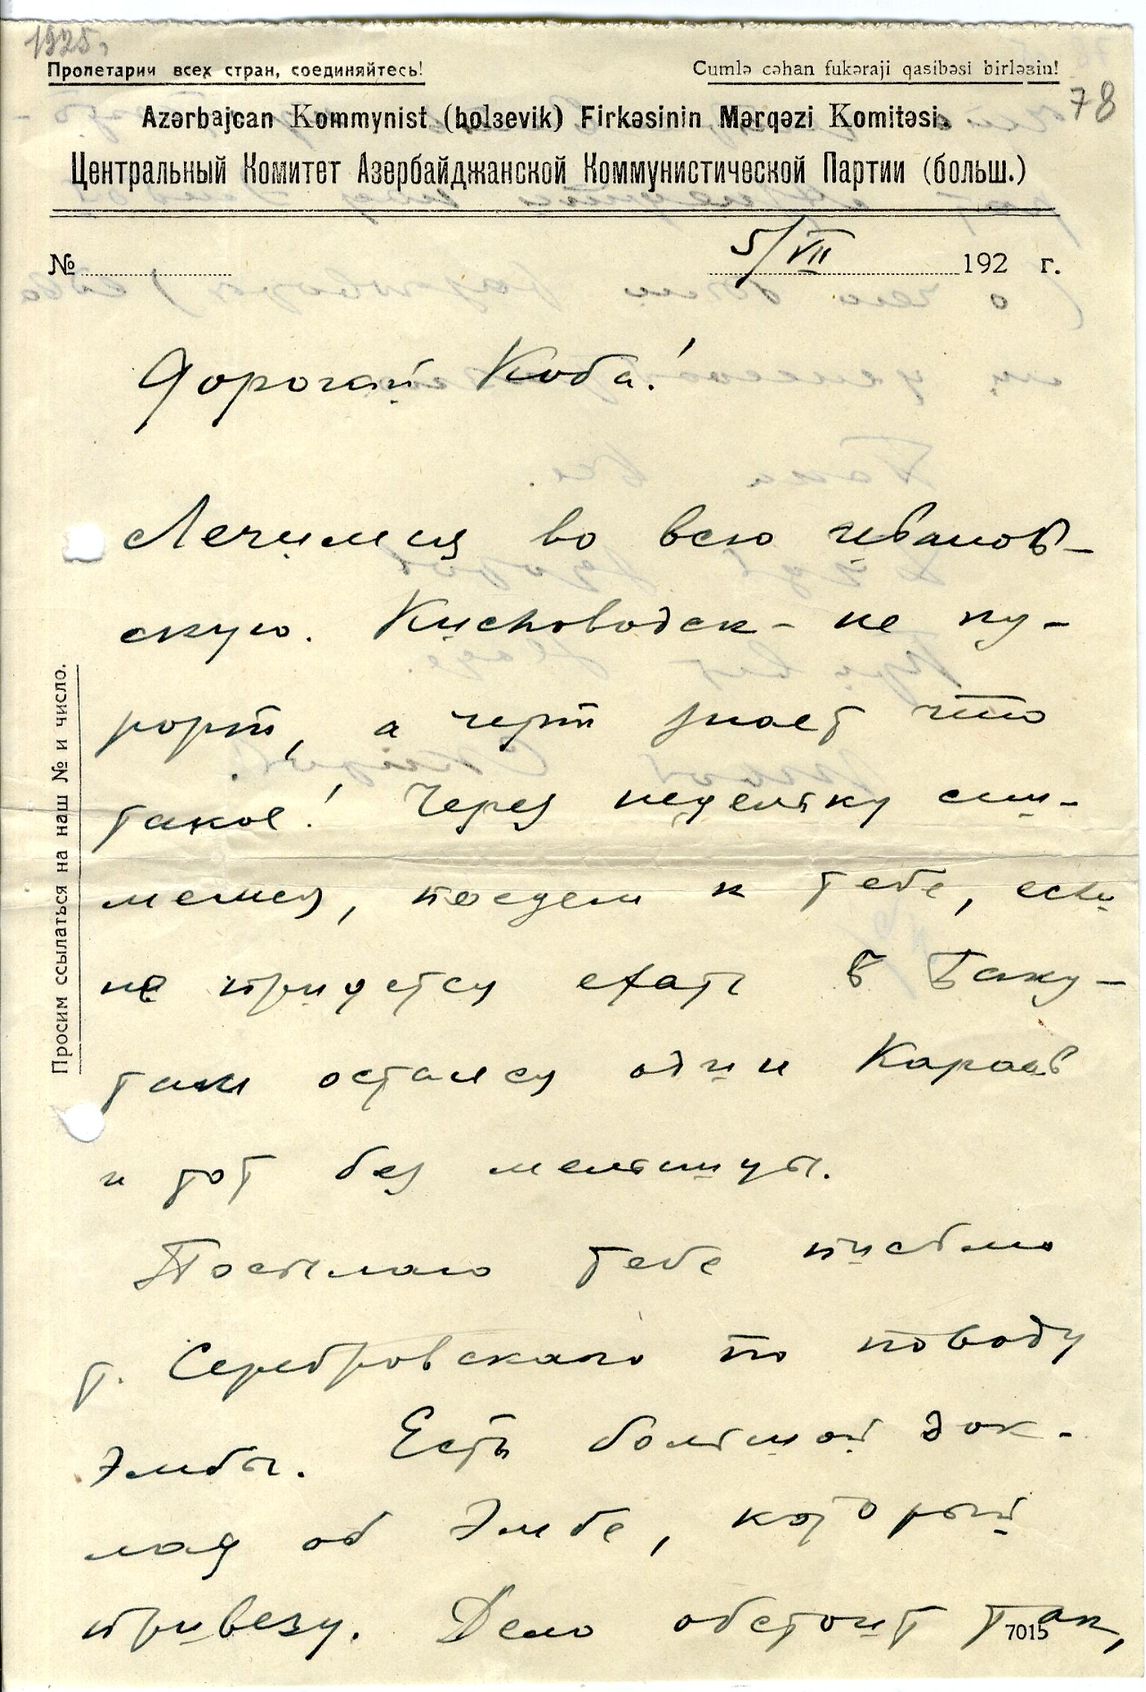 1925г.
78
Пролетарии всех стран, соединяйтесь!
Cumlə cəhan fukəraji qasibəsi birləşin!
Azərbajcan Kommynist (bolşevik) Firkəsinin Mərqəzi Komitəsi.
Центральный Комитет Азербайджанской Коммунистической Партии (больш.)
№
5/VII 192 г.
Просим ссылаться на наш № и число.
Дорогой Коба!
Лечимся во всю иванов-
скую. Кисловодск - не ку-
рорт, а черт знает что
такое! Через недельку сни-
мемся, поедем к тебе, если
не придется ехать в Баку -
там остался один Караев
и тот без мельницы.
Посылаю тебе письмо
т. Серебровского по поводу
Эмбы. Есть большой док-
лад об Эмбе, который
привезу. Дело обстоит так,
7015